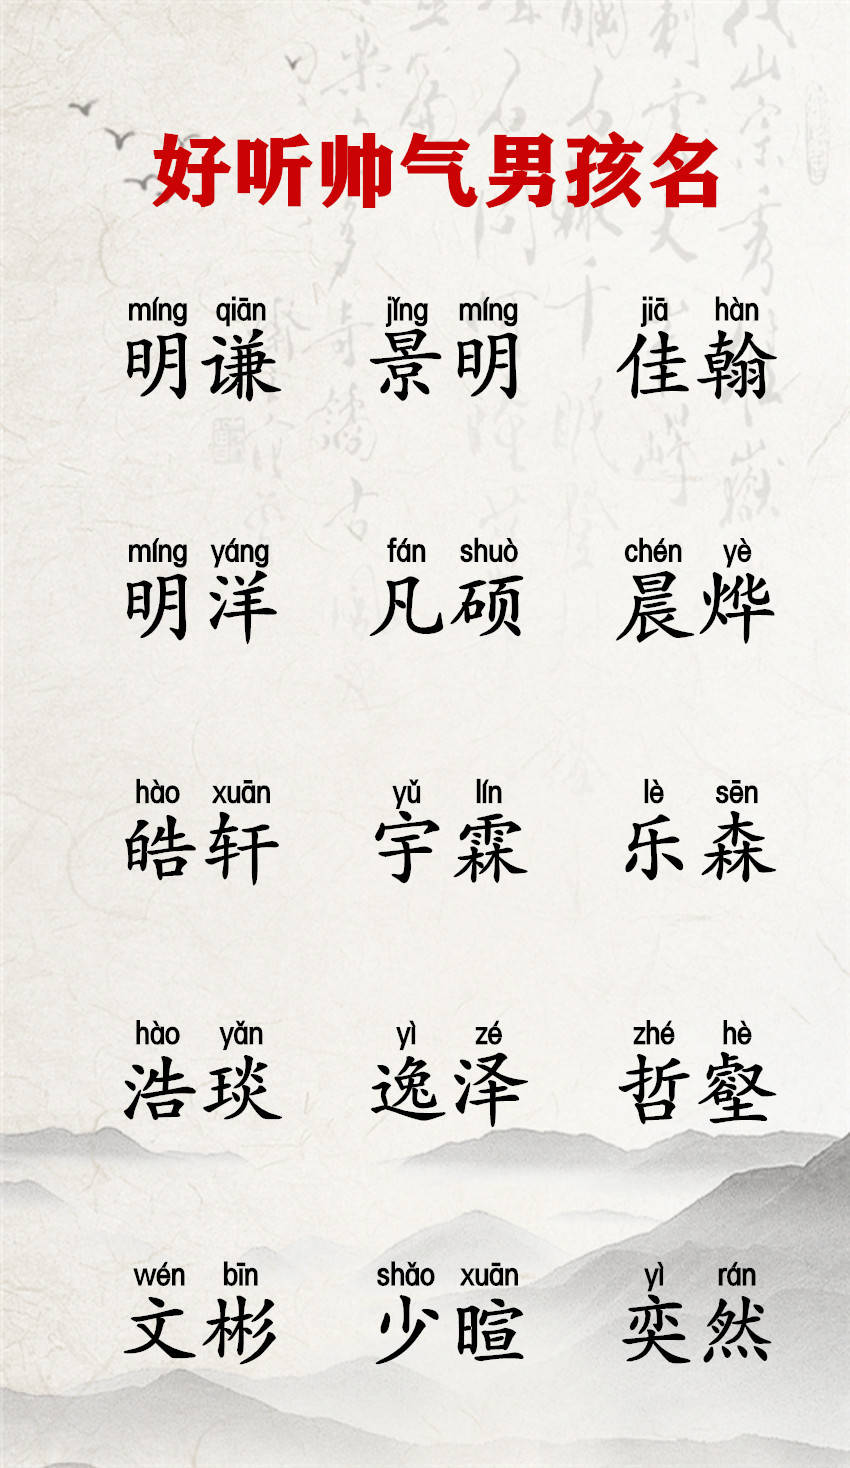 好听帅气男孩名
míng qiān jǐng míng jiā hàn
明谦 景明 佳翰
míng yáng fán shuò chén yè
明洋 凡硕 晨烨
hào xuān yǔ lín lè sēn
皓轩 宇霖 乐森
hào yǎn yì zé zhé hè
浩琰 逸泽 哲壑
wén bīn shǎo xuān yì rán
文彬 少暄 奕然